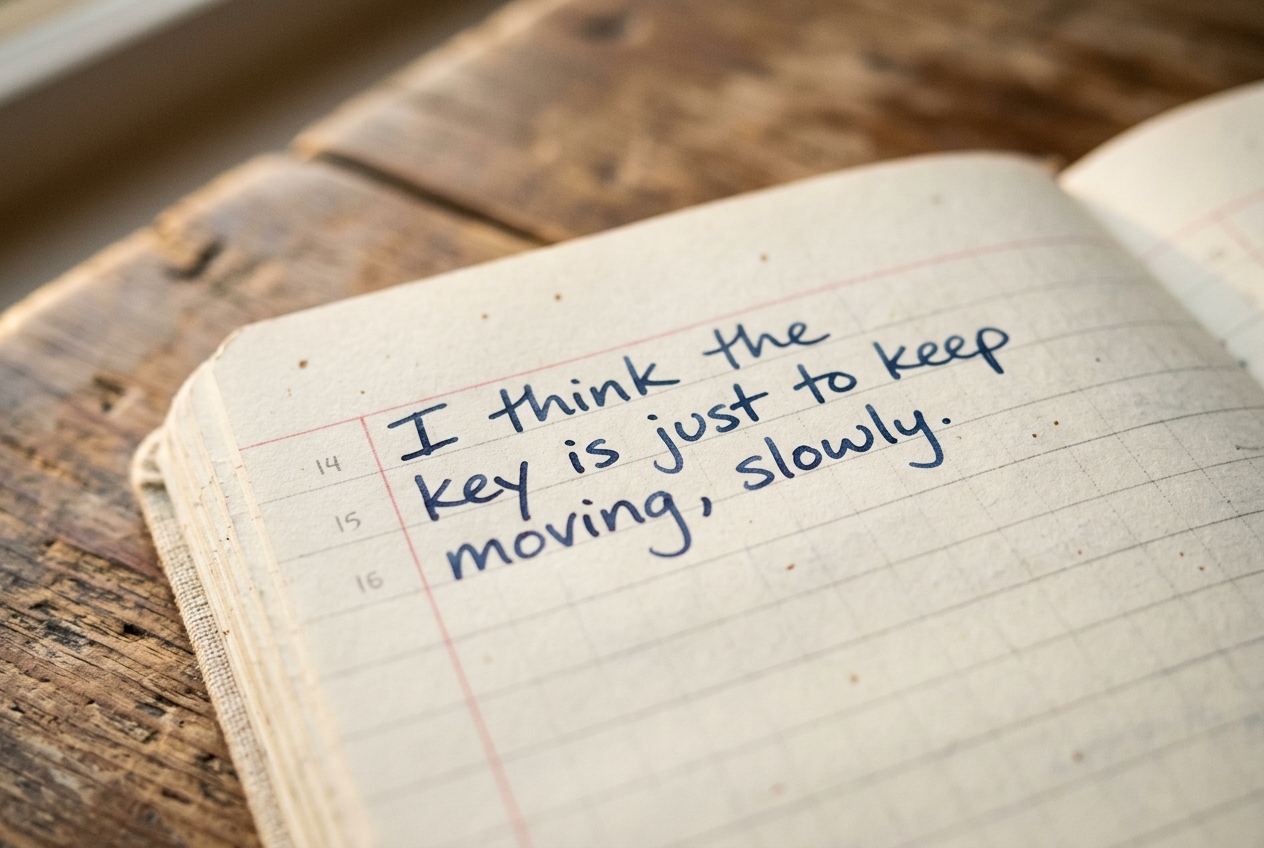 I think the
14 key is just to keep
15 moving, slowly.
16